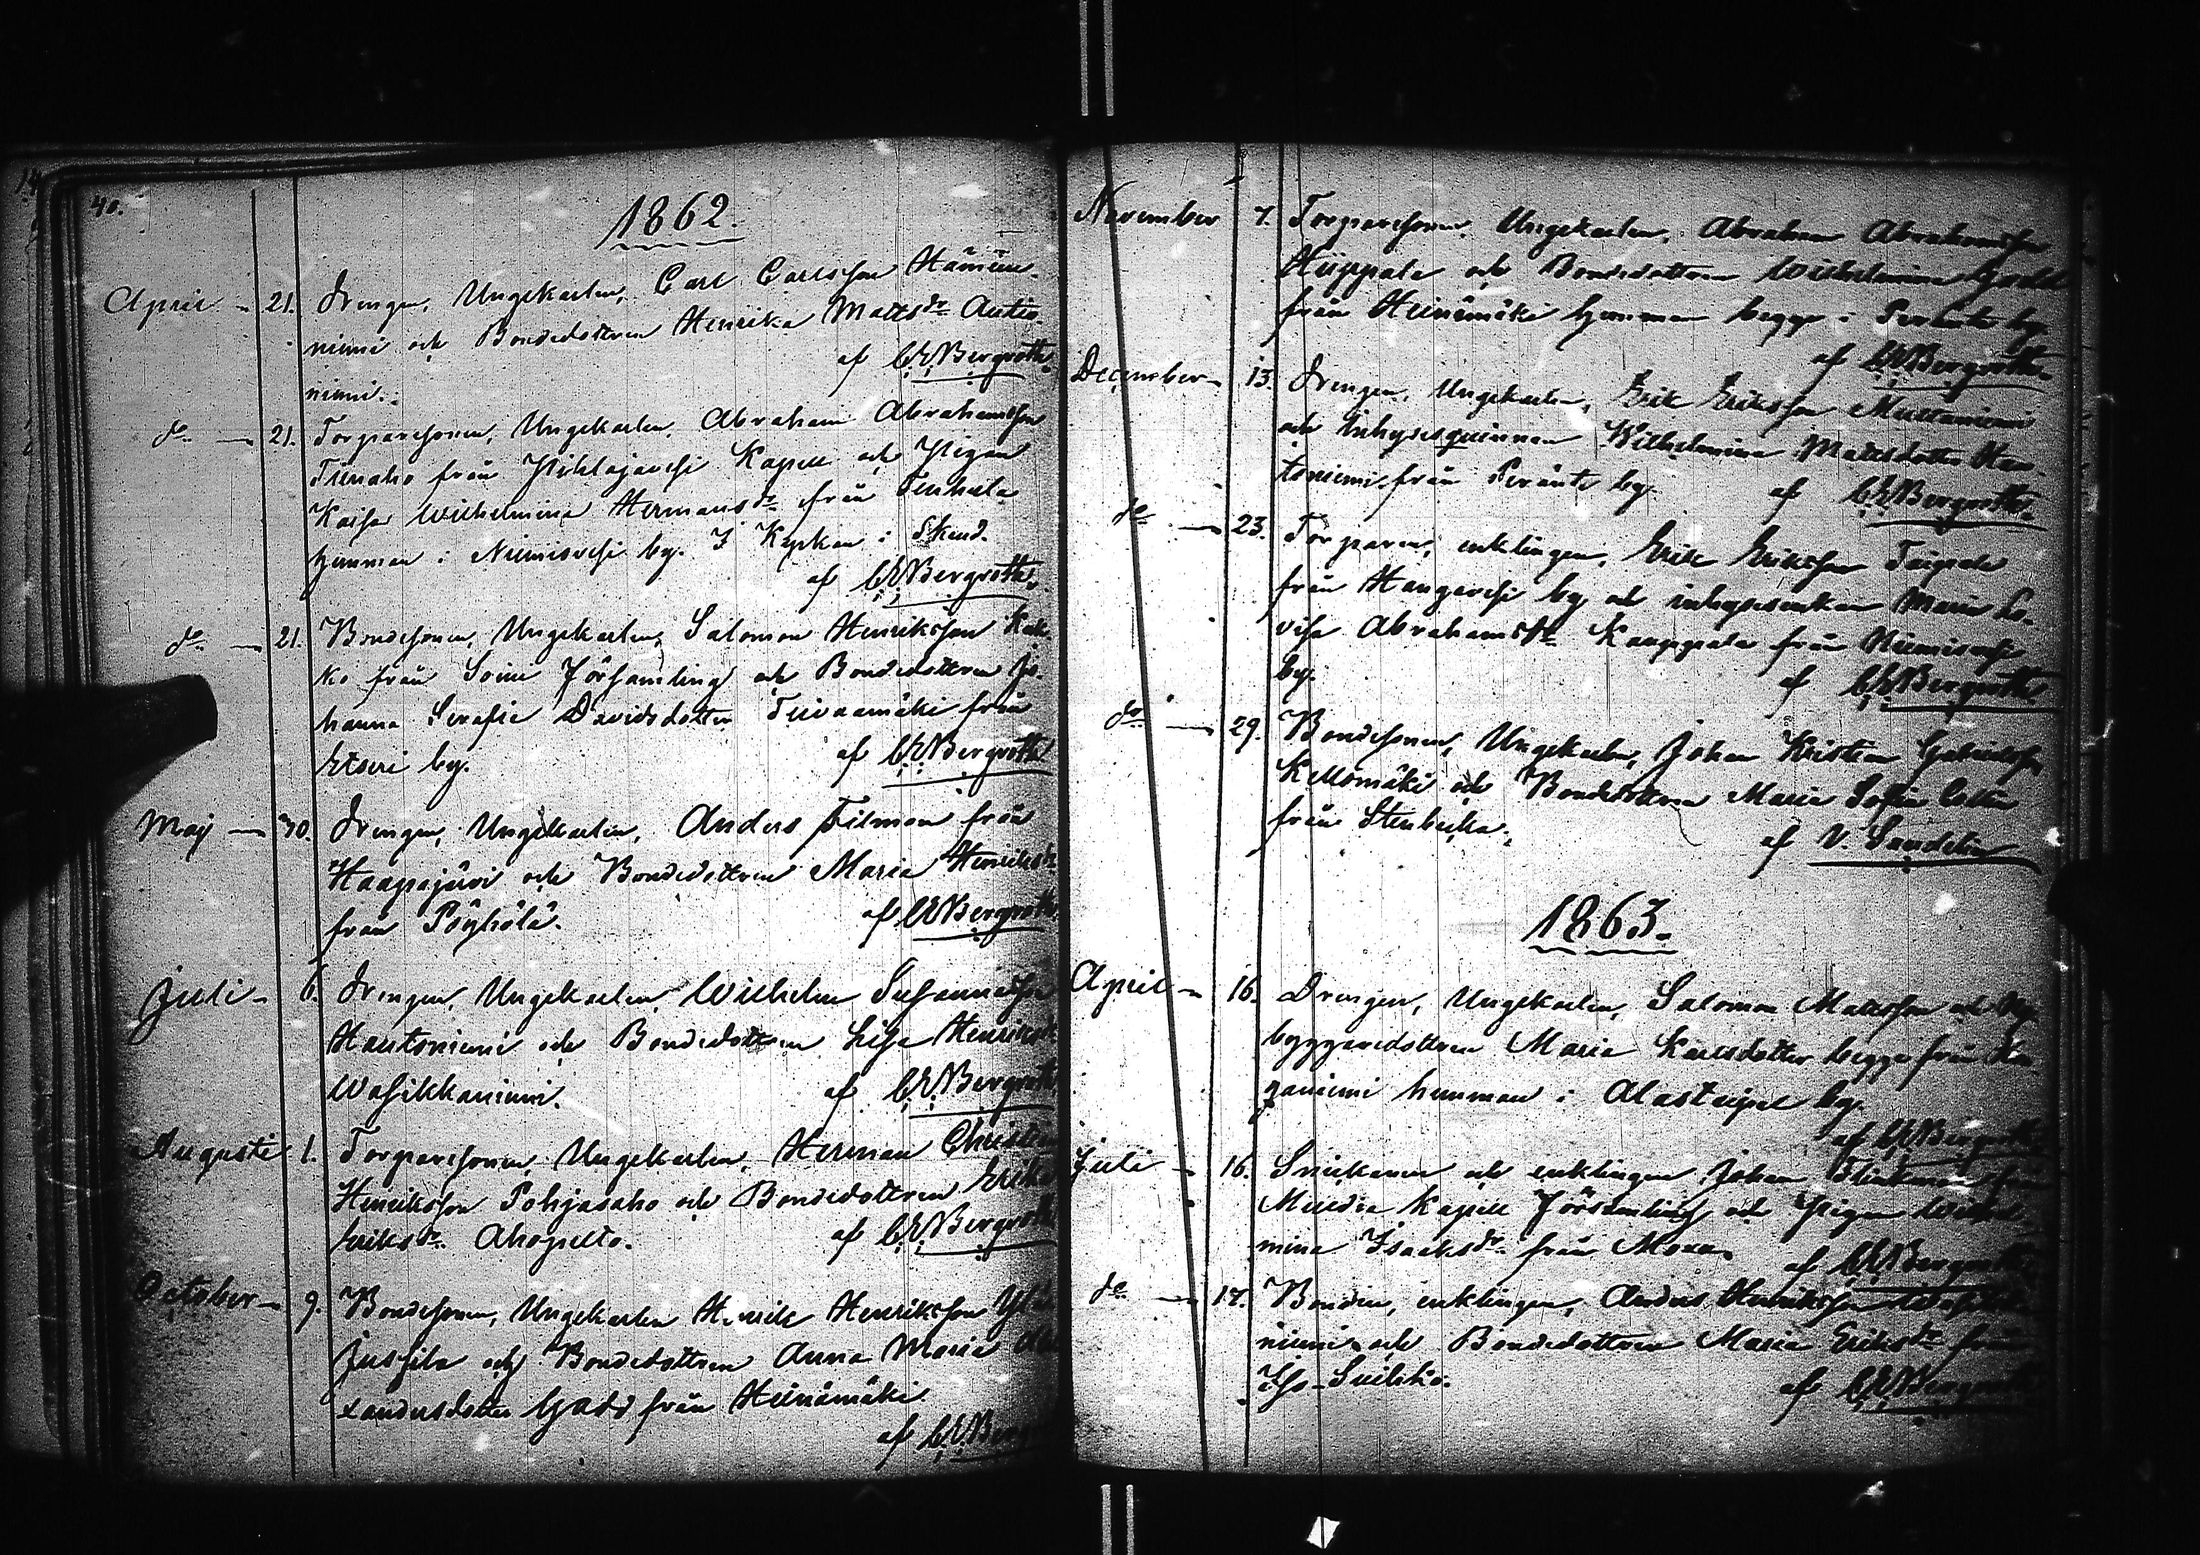 40.
1862.
April - 21. Drengen, Ungkarlen, Carl Carlsson Hämeen-
niemi och Bondedottren Henrika Mattsdr Autio-
niemi. af C.E. Bergroth.
do - 21. Torparesonen, Ungkarlen, Abraham Abrahamsson
från Pihlajavesi Kapell och Pigan
Kaisa Wilhelmina Hermansdr från
hemman i Niemisvesi by. I Kyrkan i
af C.E. Bergroth.
do - 21. Bondesonen, Ungkarlen, Salomon Henriksson Kak-
ko från Soini Församling och Bondedottren Jo-
hanna Serafia Davidsdotter från
Etseri by. af C.E. Bergroth
Maj - 30. Drengen, Ungkarlen, Anders Filman från
Haapajärvi och Bondedottren Maria Henriksdr
från Pöyhölä. af C.E. Bergroth
Juli - 6. Drengen, Ungkarlen, Wilhelm
Hautoniemi och Bondedottren Lisa Henriksdr
Wasikkaniemi. af C.E. Bergroth
Augusti 1. Torparesonen Ungkarlen, Herman Christian
Henriksson Pohjasaho och Bondedottren Erika
Eriksdr Ahopelto. af C.E. Bergroth
October - 9. Bondesonen, Ungkarlen Henrik Henriksson Yli-
Jussila och Bondedottren Anna Maria Ale-
xandersdotter Gadd från Heinämäki
af C.E. Berg
November 7. Torparesonen, Ungkarlen, Abraham Abrahamsson
och Bondedottren Wilhelmina Gadd
från Heinämäki hemman begge i Peränte by.
af C.E. Bergroth.
December - 13. Drengen, Ungkarlen, Erik Eriksson Multaniemi
och Inhysesqvinnan Wilhelmina Mattsdotter Hau-
toniemi från Peränte by. af C.E. Bergroth.
do - 23. Torparen, enklingen, Erik Eriksson
från by och inhysesenkan Maria Lo-
visa Abrahamsdr Kauppala från Niemisvesi
by. af C.E. Bergroth
do - 29. Bondesonen, Ungkarlen, Johan Kristian Gabrielsson
Kellomäki och Bondedottren Maria Sofia
från Stenbacka. af V. Sandelin
1863.
April - 16. Drengen, Ungkarlen, Salomon Mattsson och Ny-
byggaredottren Maria Karlsdotter begge från
hemman i Alastaipal by.
af C.E. Bergroth
Juli - 16. Snickaren och enklingen Johan från
Kapell Församling och Pigan Wilhel-
mina Isaksdr från af C.E. Bergroth
do - 17. Bonden, enklingen, Anders Henriksson
niemi och Bondedottren Maria Eriksdr från
Iso-Suilikko. af C.E. Bergroth